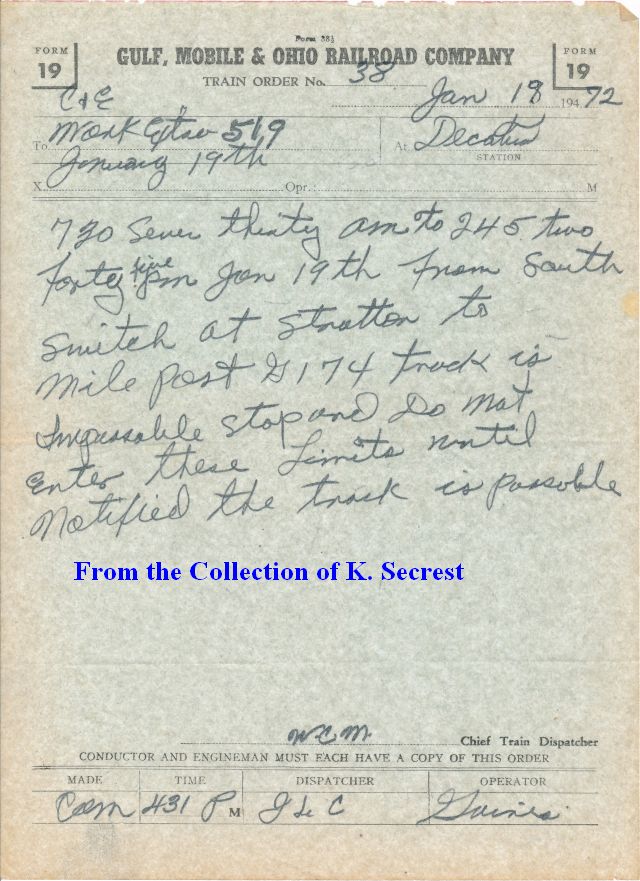 Form 38½
FORM 19
GULF, MOBILE & OHIO RAILROAD COMPANY
FORM 19
TRAIN ORDER No. 38
Jan 18 194 72
C & E
To Work Extra 519
At Decatur
STATION
January 19th
X Opr.: M
730 Seven thirty am to 245 two
forty five pm Jan 19th from South
Switch at Stratton to
Mile Post G174 track is
Impassable Stop and Do not
Enter these Limits until
Notified the track is passable
From the Collection of K. Secrest
W.C.M. Chief Train Dispatcher
CONDUCTOR AND ENGINEMAN MUST EACH HAVE A COPY OF THIS ORDER
MADE TIME DISPATCHER OPERATOR
Com 431 P M Gaines